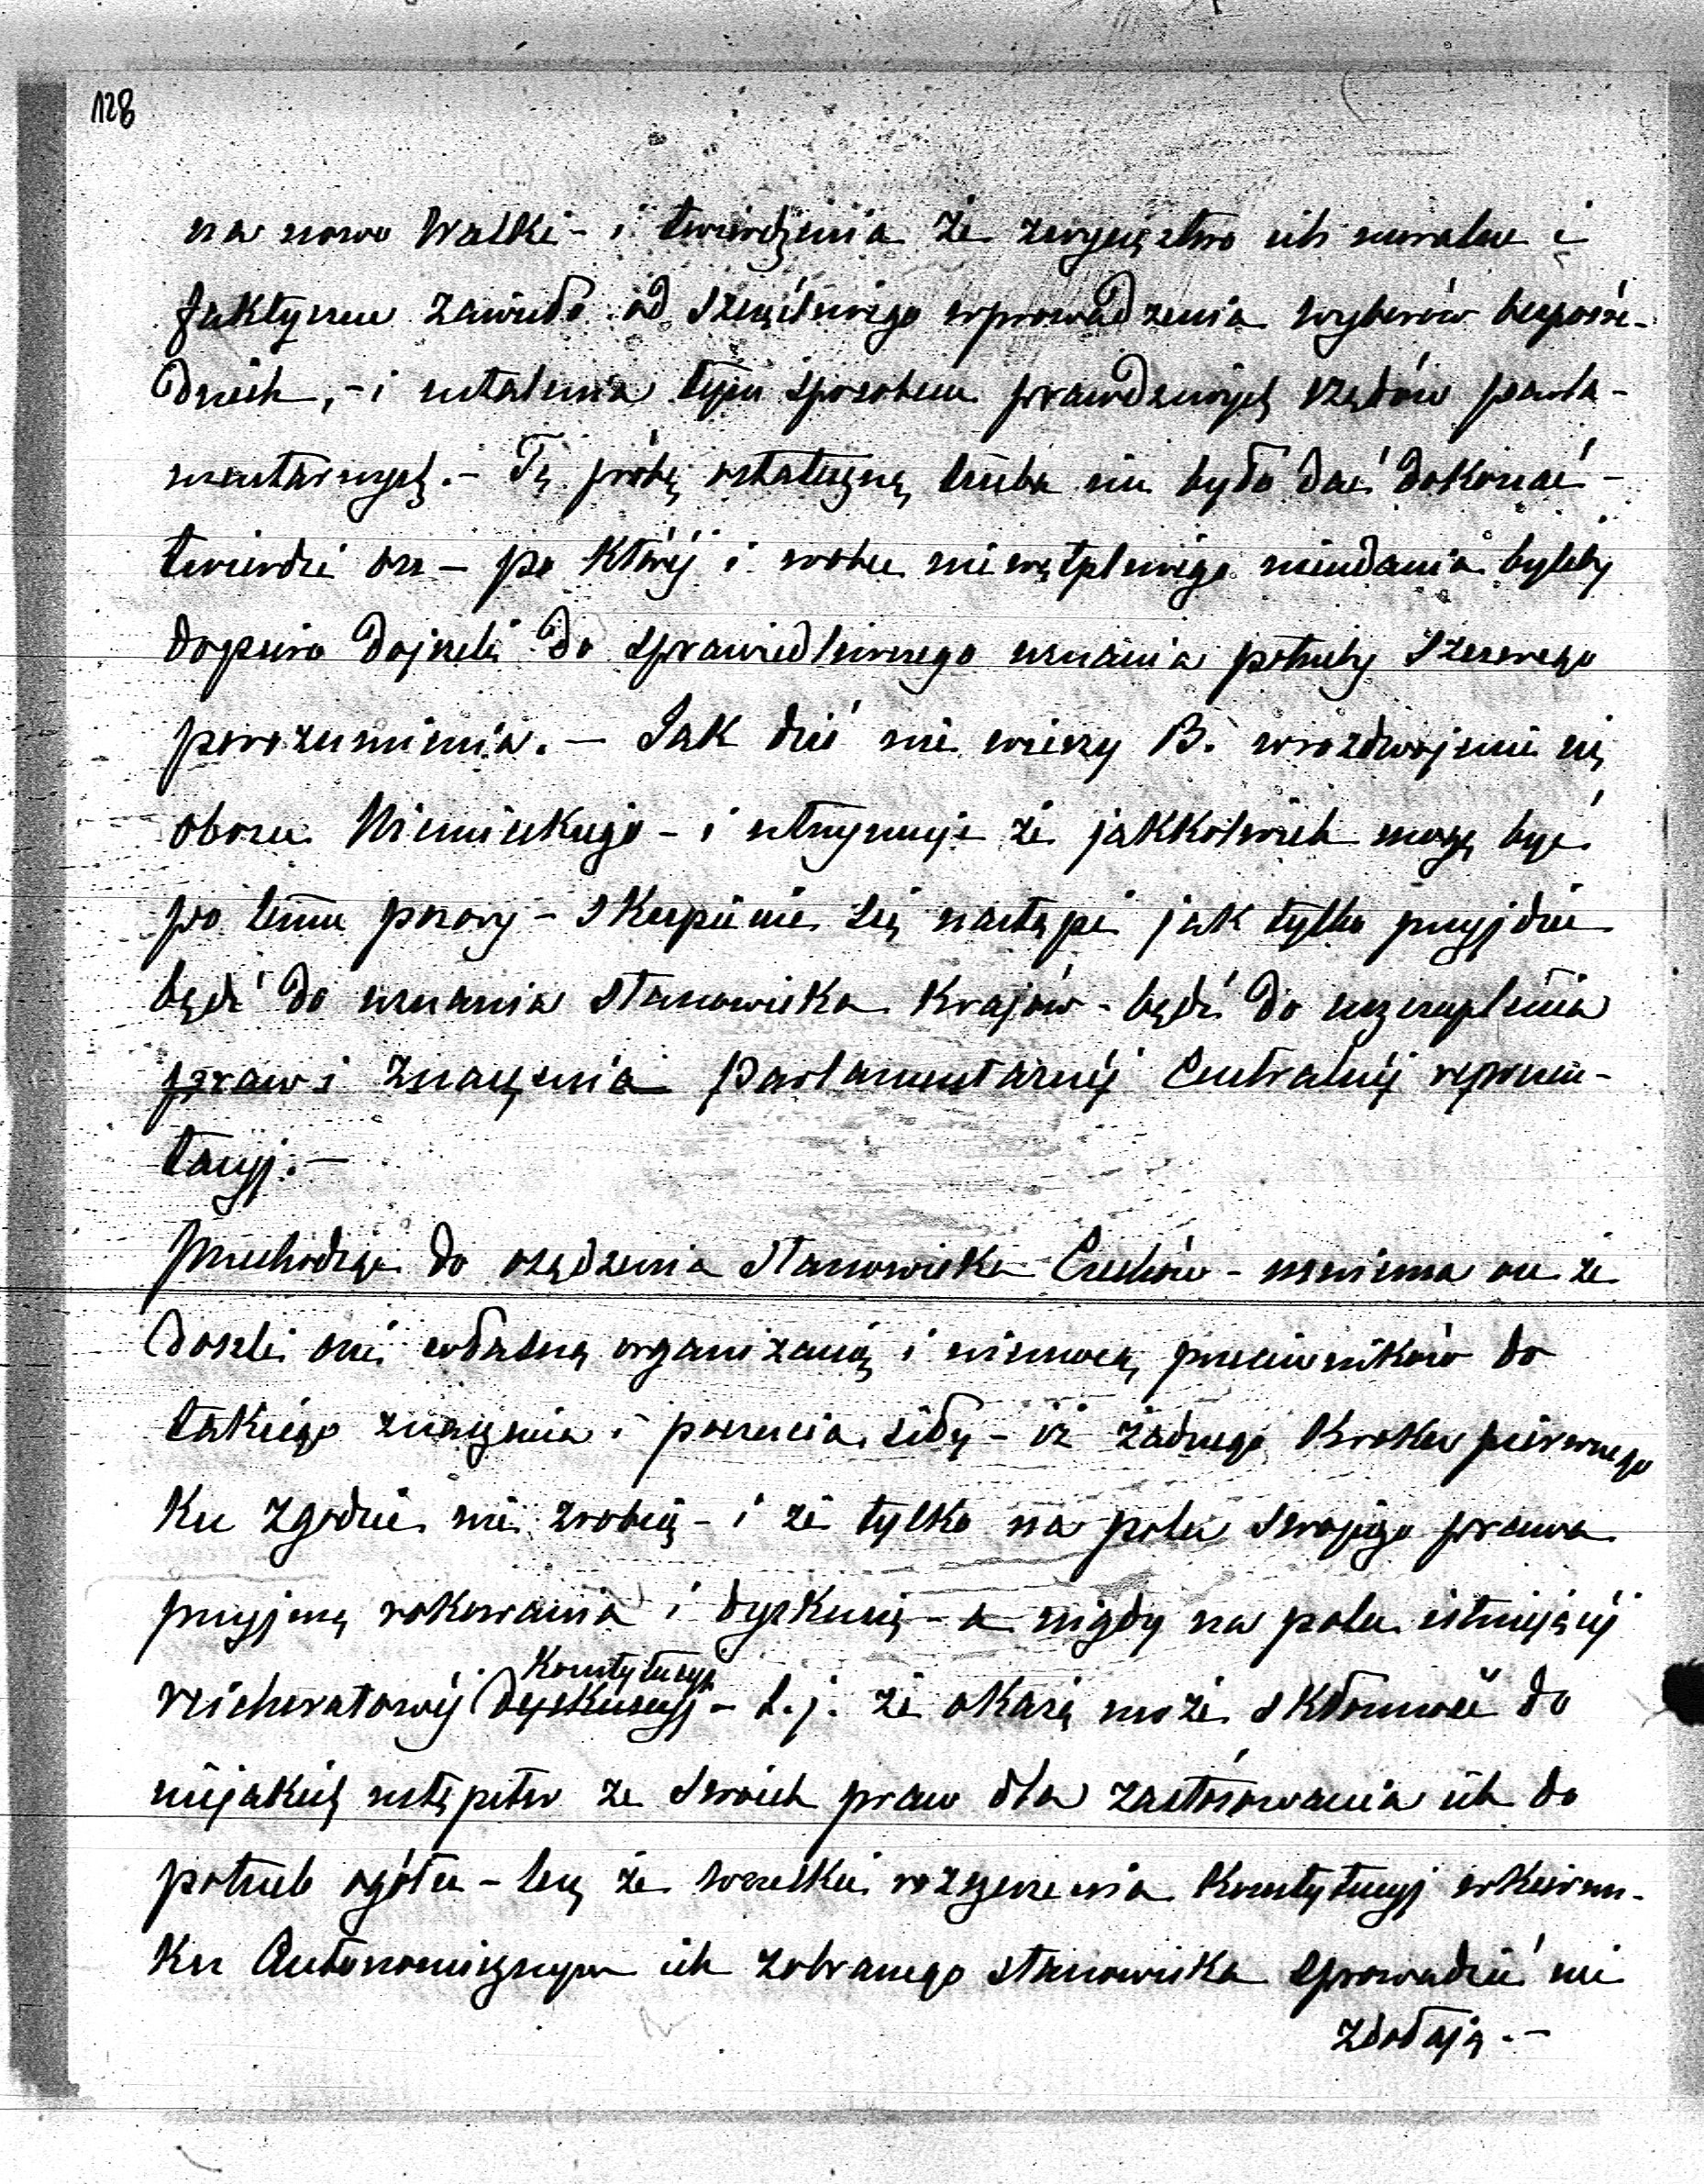 128
na nowo Walki - i twierdzenia że zwycięztwo ich moralne i
faktyczne zawisło od szczęśliwego wprowadzenia wyborów bezpośre-
dnich, - i ustalenia tym sposobem prawdziwych rządów parla-
mentarnych. - Tę próbę ostateczną trzeba im było dać dokonać -
twierdzi on - po której i wobec niewątpliwego nieudania byliby
dopiero dojrzeli do sprawiedliwszego uznania potrzeby szczerego
porozumienia. - Jak dziś nie wierzy B. w rozdwojenie się
obozu Niemieckiego - i utrzymuje że jakkolwiek mogą być
po temu pozory - skupienie się nastąpi jak tylko przyjdzie
bądź do uznania stanowiska Krajów - bądź do uszczuplenia
praw i znaczenia parlamentarnéj Centralnéj reprezen-
tacyj. -
Przechodząc do osądzenia Stanowiska Czechów - mniema on że
doszli oni własną organizacją i niemocą przeciwników do
takiego znaczenia i poczucia siły - iż żadnego Kroku pierwszego
Ku zgodzie nie zrobią - i że tylko na polu swojego prawa
przyjmą rokowania i dyskusją - a nigdy na polu istniejącéj
Konstytucyj
reichsratowéj dyskusyj - t. j. że okażą może skłonność do
niejakich ustępstw ze swoich praw dla zastósowania ich do
potrzeb ogółu - lecz że wszelkie rozszerzenia Konstytucyj w kierun-
Ku Autonomicznym ich z obranego stanowiska sprowadzić nie
zdołają. -